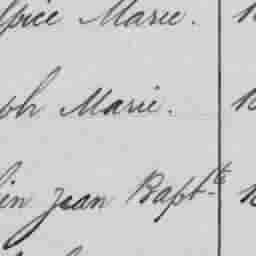 lpice Marie.
ph Marie.
in Jean Bapt.te